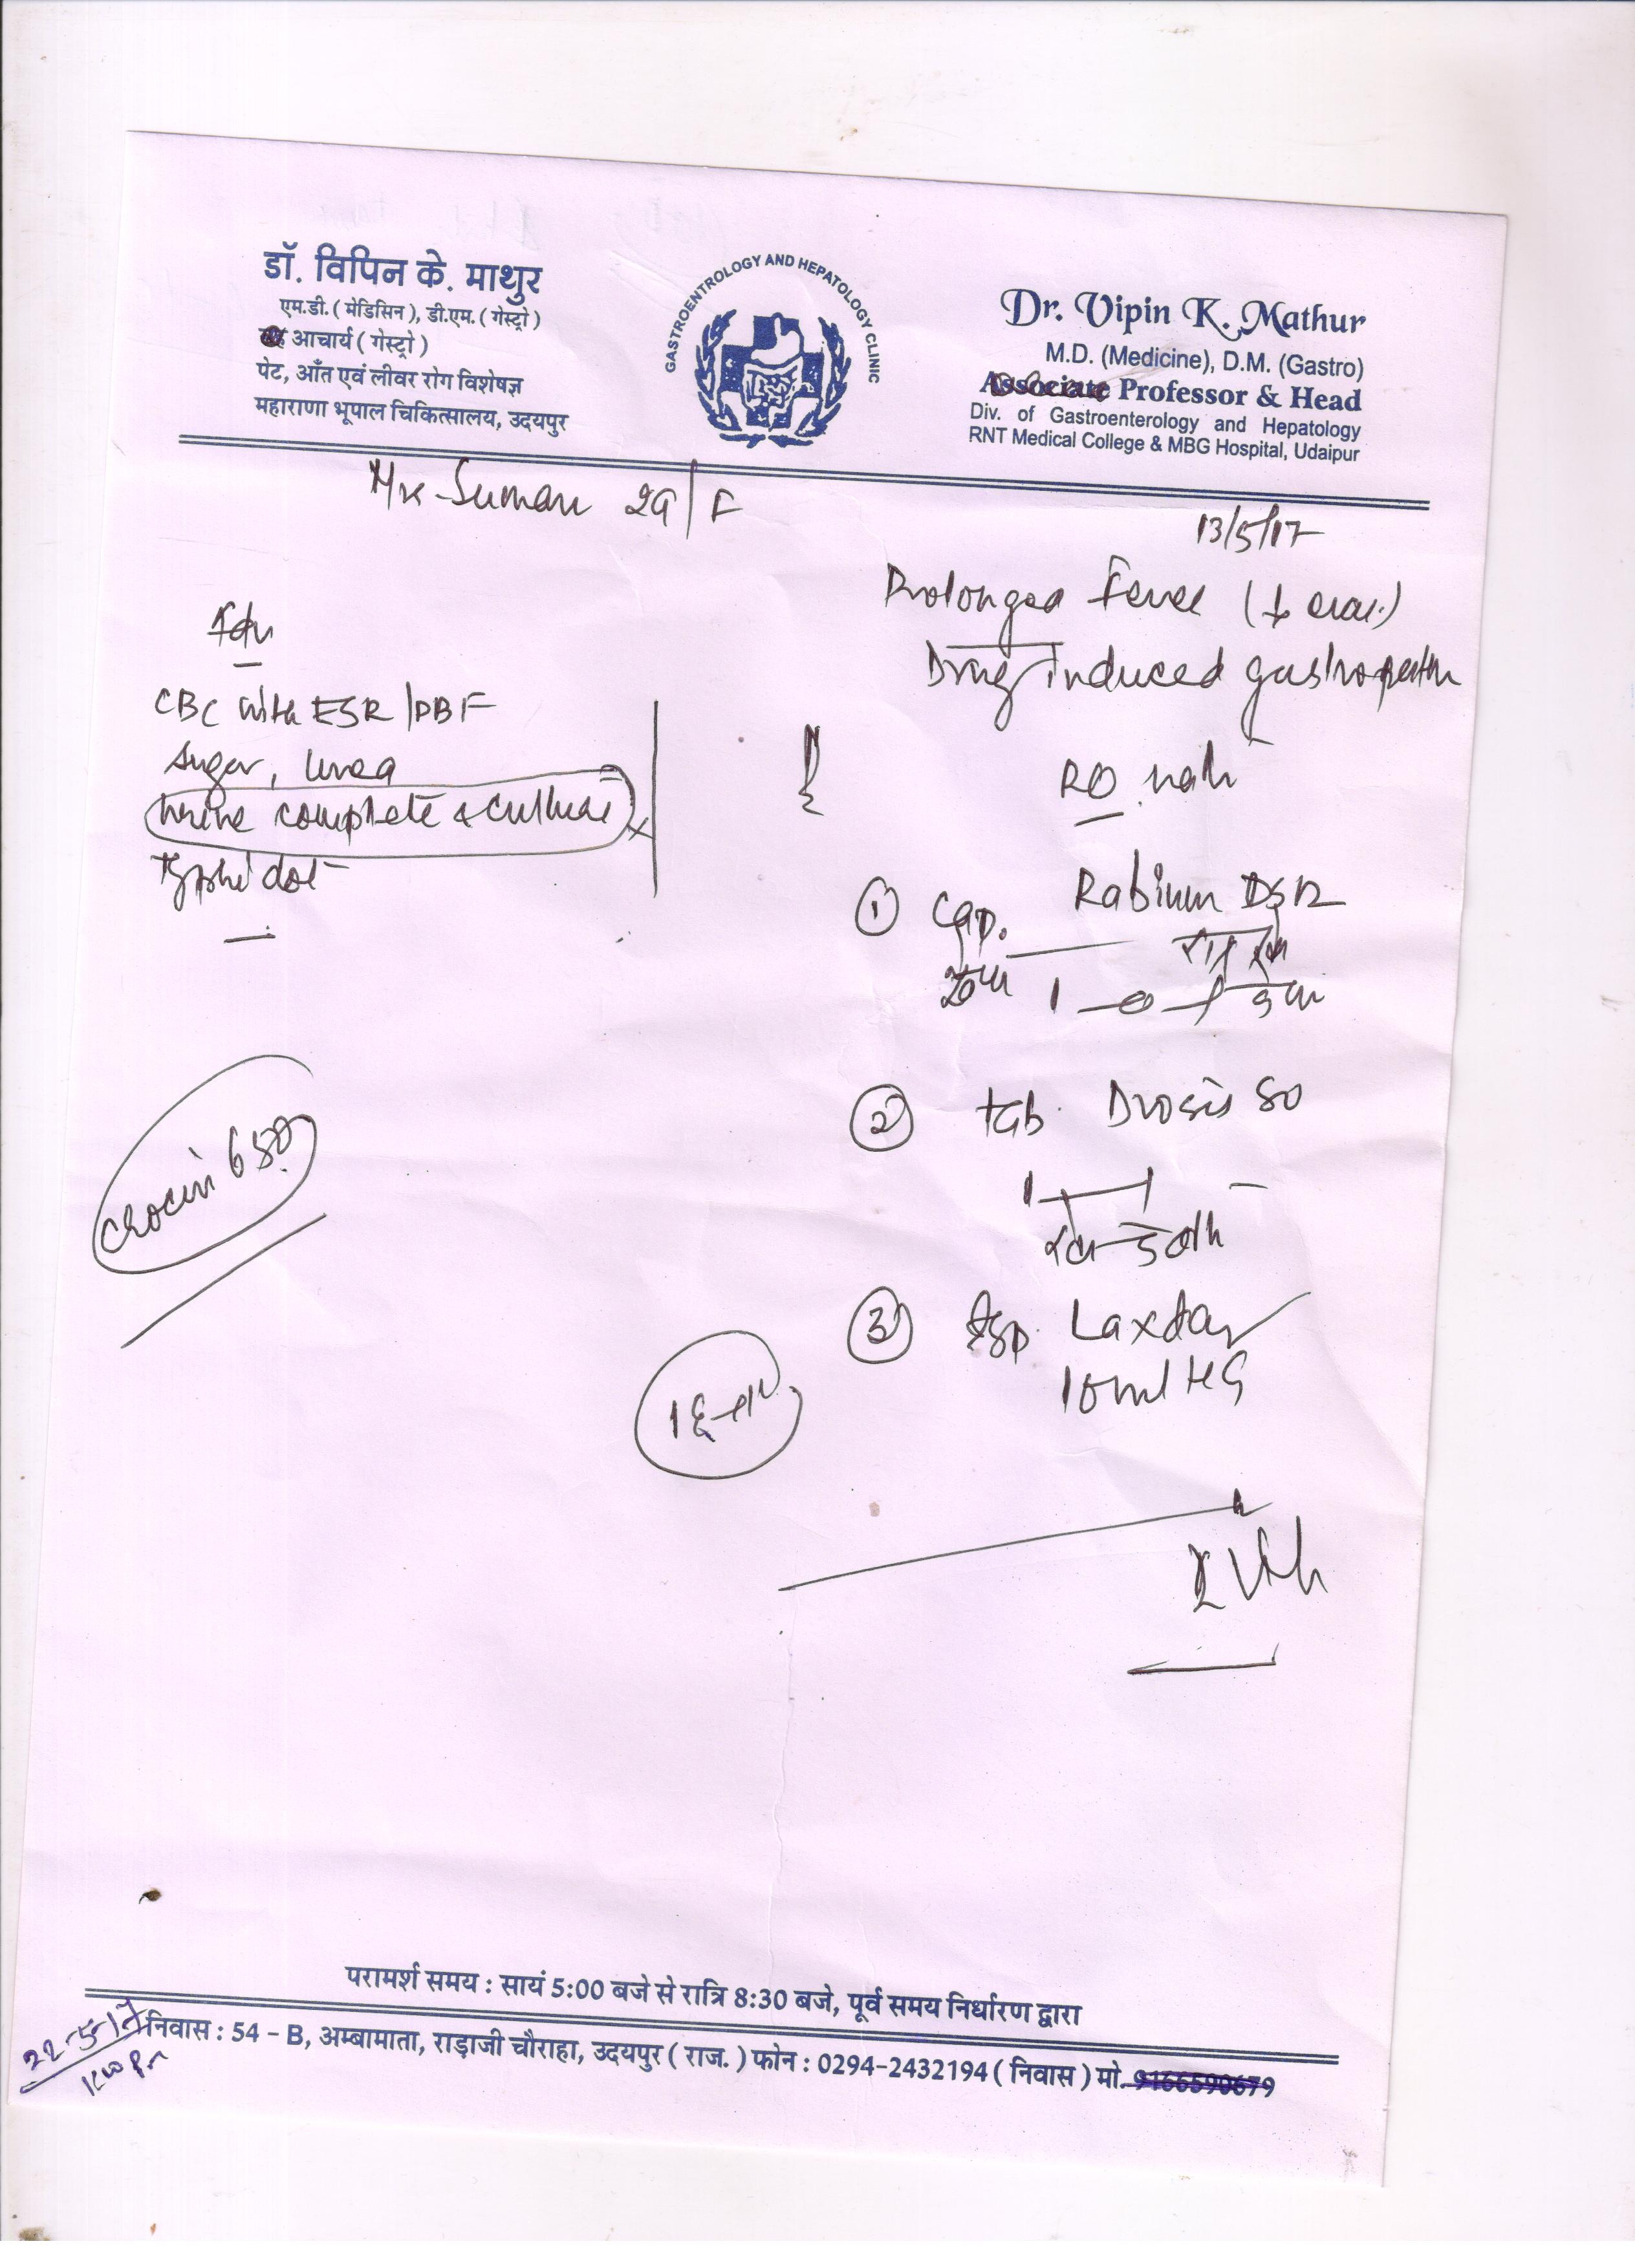 डॉ. विपिन के. माथुर
एम.डी. ( मेडिसिन ), डी.एम. ( गेस्ट्रो )
आचार्य ( गेस्ट्रो )
पेट, आँत एवं लीवर रोग विशेषज्ञ
महाराणा भूपाल चिकित्सालय, उदयपुर
GASTROENTROLOGY AND HEPATOLOGY CLINIC
Dr. Vipin K. Mathur
M.D. (Medicine), D.M. (Gastro)
Associate Professor & Head
Div. of Gastroenterology and Hepatology
RNT Medical College & MBG Hospital, Udaipur
Suman 29/F
13/5/17
Prolonged Fever
Drug induced
CBC with ESR/PBF
Sugar, Urea
Urine complete & culture
Typhi dot
① Cap. Rabium DSR
1-0-1
② tab. Drosis 80
1-1
③ Syp. Laxday
10ml HS
Crocin 650
परामर्श समय : सायं 5:00 बजे से रात्रि 8:30 बजे, पूर्व समय निर्धारण द्वारा
निवास : 54 - B, अम्बामाता, राड़ाजी चौराहा, उदयपुर ( राज. ) फोन : 0294-2432194 ( निवास ) मो. 9166590679
22-5-17